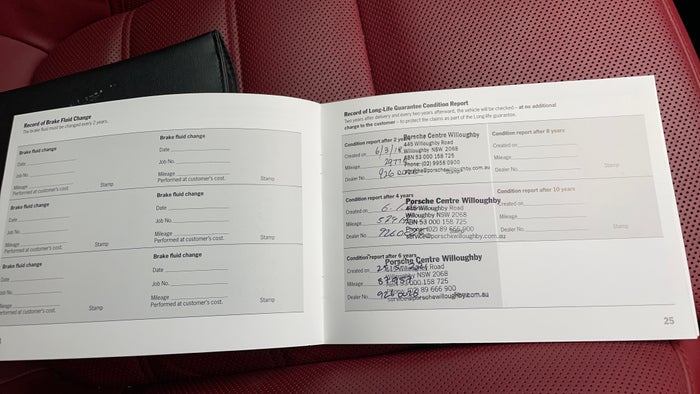 Record of Brake Fluid Change
The brake fluid must be changed every 2 years.
Brake fluid change
Date
Job No.
Mileage
Performed at customer's cost.
Stamp
Brake fluid change
Date
Job No.
Mileage
Performed at customer's cost.
Stamp
Brake fluid change
Date
Job No.
Mileage
Performed at customer's cost.
Stamp
Brake fluid change
Date
Job No.
Mileage
Performed at customer's cost.
Stamp
Brake fluid change
Date
Job No.
Mileage
Performed at customer's cost.
Stamp
Brake fluid change
Date
Job No.
Mileage
Performed at customer's cost.
Stamp
Record of Long-Life Guarantee Condition Report
Two years after delivery and every two years afterward, the vehicle will be checked – at no additional
charge to the customer – to protect the claims as part of the Long-life guarantee.
Condition report after 2
Created on
Mileage
Dealer No.
Porsche Centre Willoughby
445 Willoughby Road
Willoughby NSW 2068
ABN 53 000 158 725
Phone: (02) 9958 0900
Condition report after 4 years
Created on
Mileage
Dealer No.
Porsche Centre Willoughby
Willoughby Road
Willoughby NSW 2068
ABN 53 000 158 725
Phone: (02) 89 666 900
service@porschewilloughby.com.au
Condition report after 6 years
Created on
Mileage
Dealer No.
Porsche Centre Willoughby
Road
NSW 2068
000 158 725
(02) 89 666 900
service@porschewilloughby.com.au
Condition report after 8 years
Created on
Mileage
Dealer No.
Stamp
Condition report after 10 years
Created on
Mileage
Dealer No.
Stamp
25